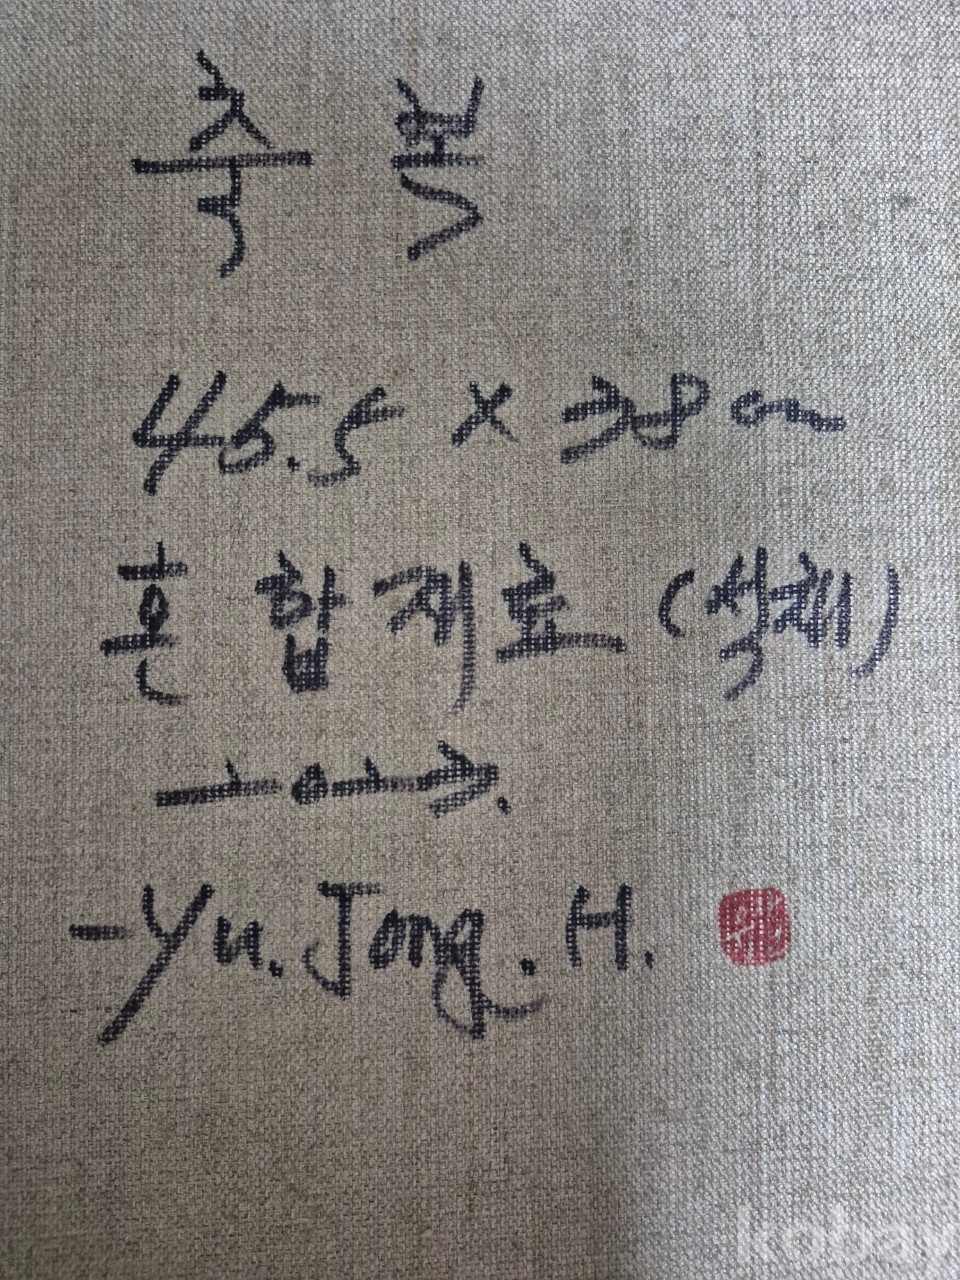 축 복
45.5 × 38 cm
혼합재료 (석채)
2023.
-Yu. Jong. H.
kobay